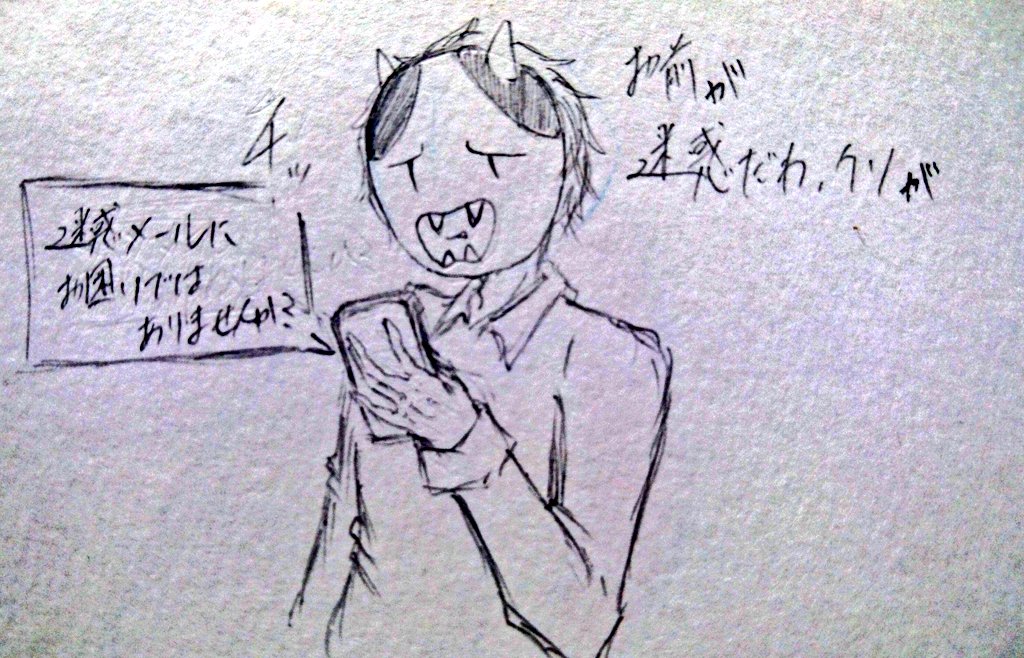 お前が
迷惑だわ、クソが
チッ
迷惑メールに
お困りでは
ありませんか?